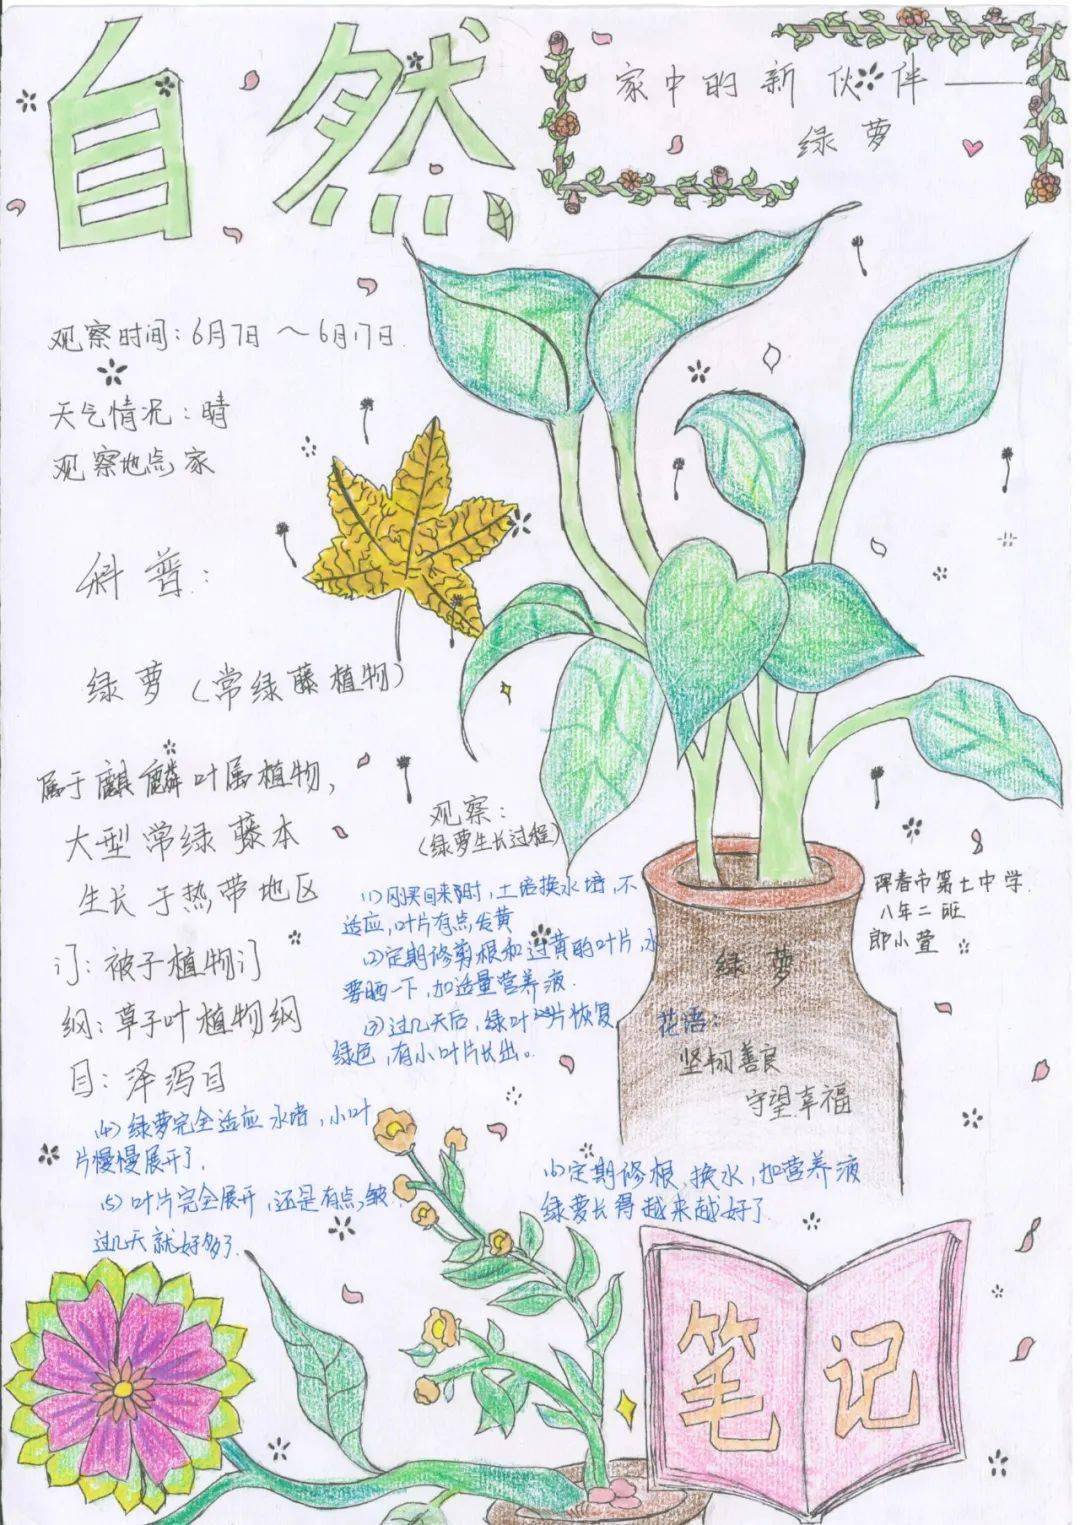 自然
家中的新伙伴——
绿萝
观察时间:6月7日～6月17日.
天气情况:晴
观察地点家
科普:
绿萝(常绿藤植物)
属于麒麟叶属植物,
大型常绿藤本
生长于热带地区
门:被子植物门
纲:草子叶植物纲
目:泽泻目
观察:
(绿萝生长过程)
(1)刚买回来时,土培换水培,不
适应,叶片有点发黄
(2)定期修剪根和过黄的叶片,水
要晒一下,加适量营养液.
(3)过几天后,绿叶片恢复
绿色,有小叶片长出。
(4)绿萝完全适应水培,小叶
片慢慢展开了.
(5)叶片完全展开,还是有点皱.
过几天就好多了.
(6)定期修根,换水,加营养液
绿萝长得越来越好了.
绿萝
花语:
坚韧善良
守望幸福
珲春市第七中学.
八年二班
郎小萱
笔记